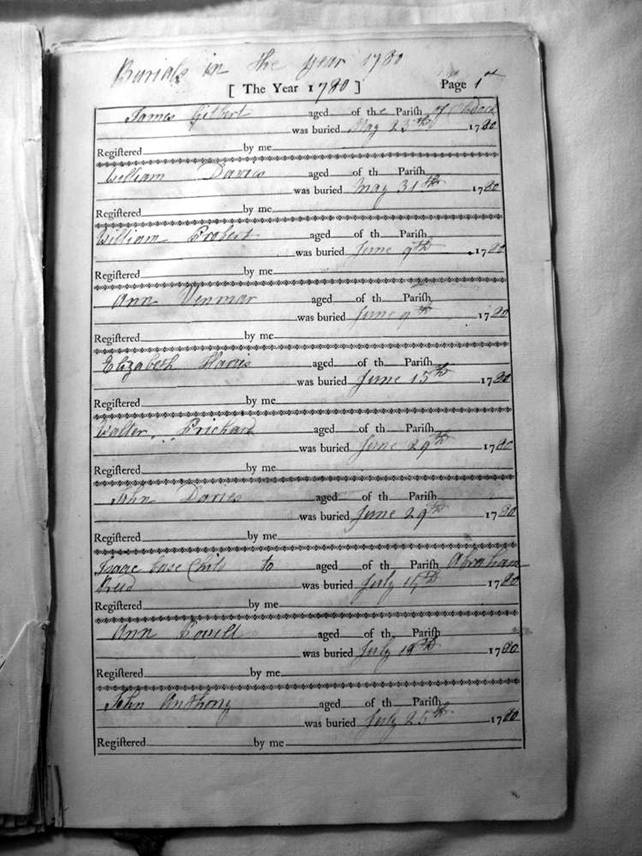 Burials in the year 1780
[ The Year 1780 ] Page 1st
James Gilbert aged of the Pariſh of
was buried May 23th 1780
Regiſtered by me
William Davies aged of th Pariſh
was buried May 31th 1780
Regiſtered by me
William Probert aged of th Pariſh
was buried June 9th 1780
Regiſtered by me
Ann Venmor aged of th Pariſh
was buried June 9th 1780
Regiſtered by me
Elizabeth Haris aged of th Pariſh
was buried June 15th 1780
Regiſtered by me
Walter Prichard aged of th Pariſh
was buried June 29th 1780
Regiſtered by me
John Davies aged of th Pariſh
was buried June 29th 1780
Regiſtered by me
Isaac base Child to aged of th Pariſh Abraham
Preed was buried July 1780
Regiſtered by me
Ann Powell aged of th Pariſh
was buried July 19th 1780
Regiſtered by me
John Anthony aged of th Pariſh
was buried July 25th 1780
Regiſtered by me